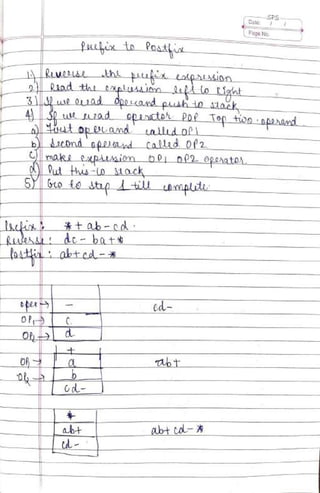 SPS
Date: / /
Page No.
Prefix to Postfix
1) Reverse the prefix expression
2) Read the expression left to right
3) If we read operand push to stack
4) If we read operator POP Top two operand
a) First operand called OP1
b) Second operand called OP2
c) make expression OP1 OP2 operator
d) Put this to stack
5) Go to step 1 till complete
Prefix: *+ab-cd.
Reverse: dc-ba+*
Postfix: ab+cd-*
oper→ -
OP1→ c cd-
OP2→ d
+
OP1→ a ab+
OP2→ b
cd-
*
ab+ ab+cd-*
cd-